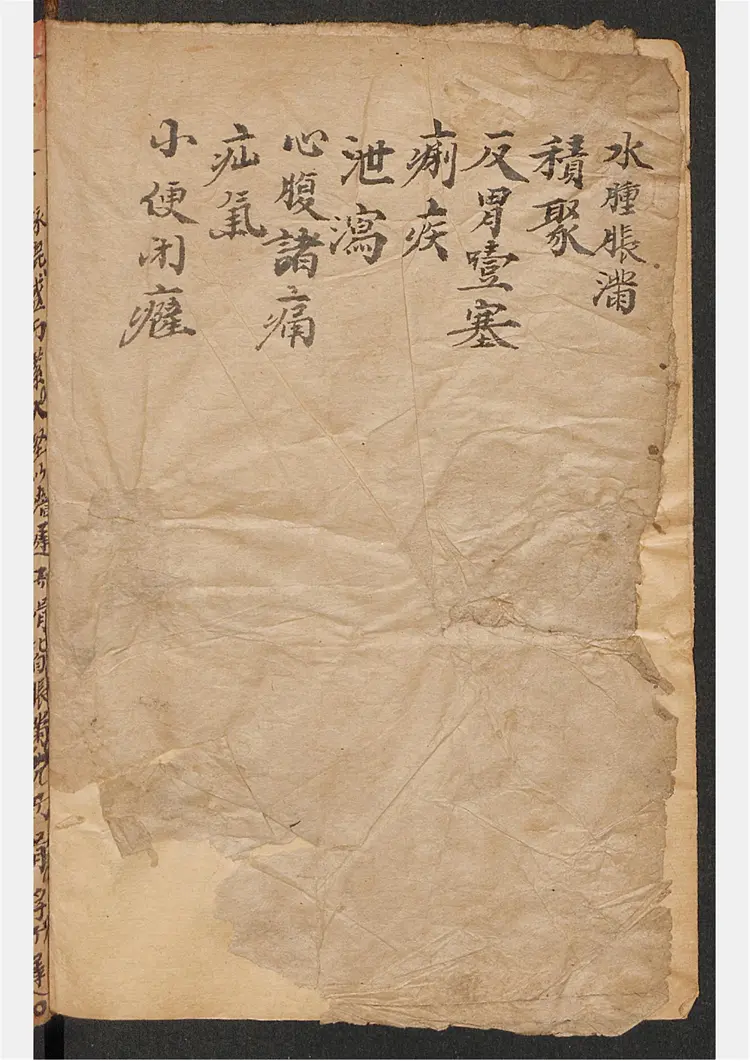 水腫脹滿
積聚
反胃噎塞
痢疾
泄瀉
心腹諸痛
疝氣
小便閉癃